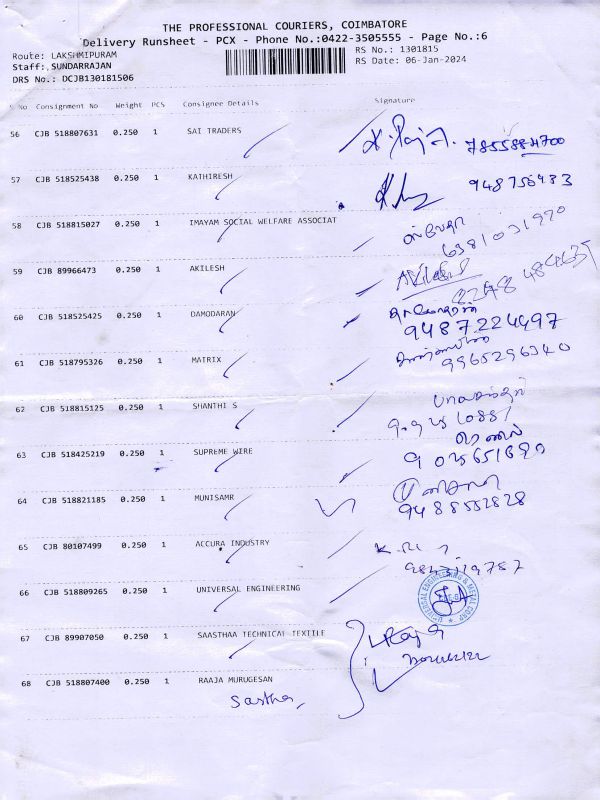 THE PROFESSIONAL COURIERS, COIMBATORE
Delivery Runsheet - PCX - Phone No.:0422-3505555 - Page No.:6
Route: LAKSHMIPURAM
RS No.: 1301815
Staff: SUNDARRAJAN
RS Date: 06-Jan-2024
DRS No.: DCJB130181506
S No Consignment No Weight PCS Consignee Details Signature
56 CJB 518807631 0.250 1 SAI TRADERS
57 CJB 518525438 0.250 1 KATHIRESH
58 CJB 518815027 0.250 1 IMAYAM SOCIAL WELFARE ASSOCIAT
6381031970
59 CJB 89966473 0.250 1 AKILESH
60 CJB 518525425 0.250 1 DAMODARAN
9487224497
61 CJB 518795326 0.250 1 MATRIX
9965296340
62 CJB 518815125 0.250 1 SHANTHI S
63 CJB 518425219 0.250 1 SUPREME WIRE
64 CJB 518821185 0.250 1 MUNISAMR
9488552828
65 CJB 80107499 0.250 1 ACCURA INDUSTRY
66 CJB 518809265 0.250 1 UNIVERSAL ENGINEERING
UNIVERSAL ENGINEERING & METAL CORP
67 CJB 89907050 0.250 1 SAASTHAA TECHNICAL TEXTILE
68 CJB 518807400 0.250 1 RAAJA MURUGESAN
Sastha,